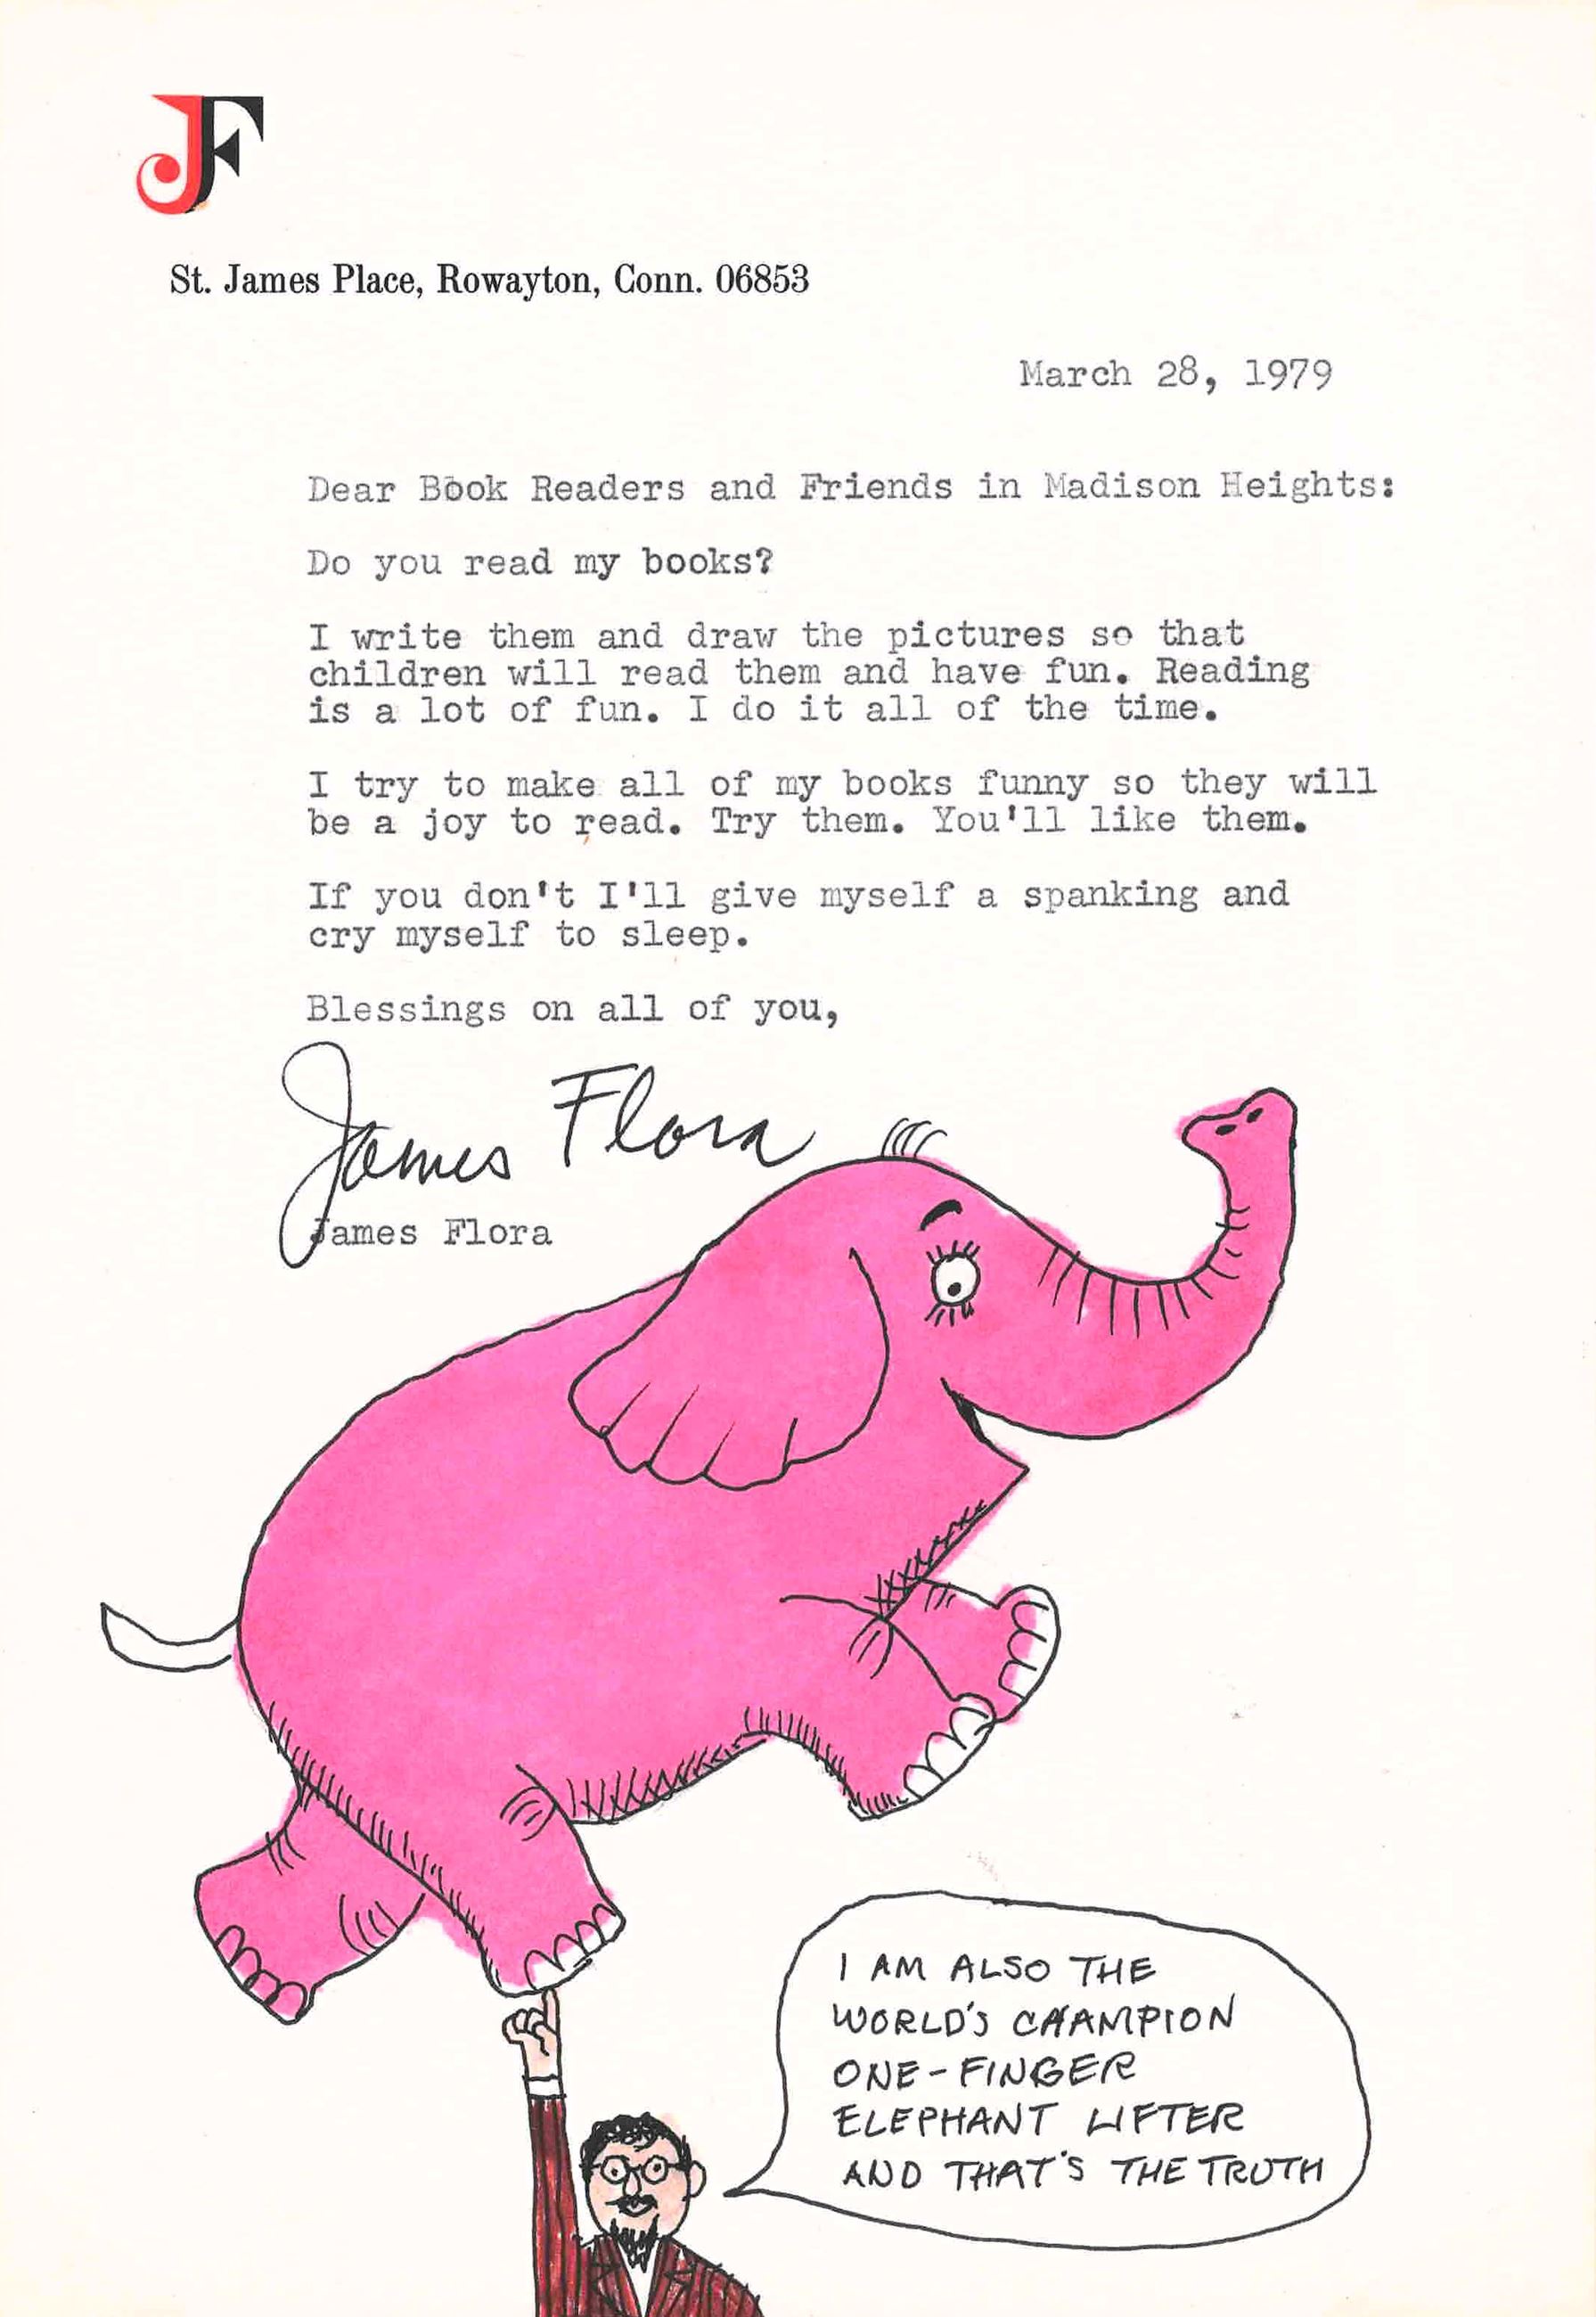 JF
St. James Place, Rowayton, Conn. 06853
March 28, 1979
Dear Book Readers and Friends in Madison Heights:
Do you read my books?
I write them and draw the pictures so that
children will read them and have fun. Reading
is a lot of fun. I do it all of the time.
I try to make all of my books funny so they will
be a joy to read. Try them. You'll like them.
If you don't I'll give myself a spanking and
cry myself to sleep.
Blessings on all of you,
James Flora
James Flora
I AM ALSO THE
WORLD'S CHAMPION
ONE-FINGER
ELEPHANT LIFTER
AND THAT'S THE TRUTH